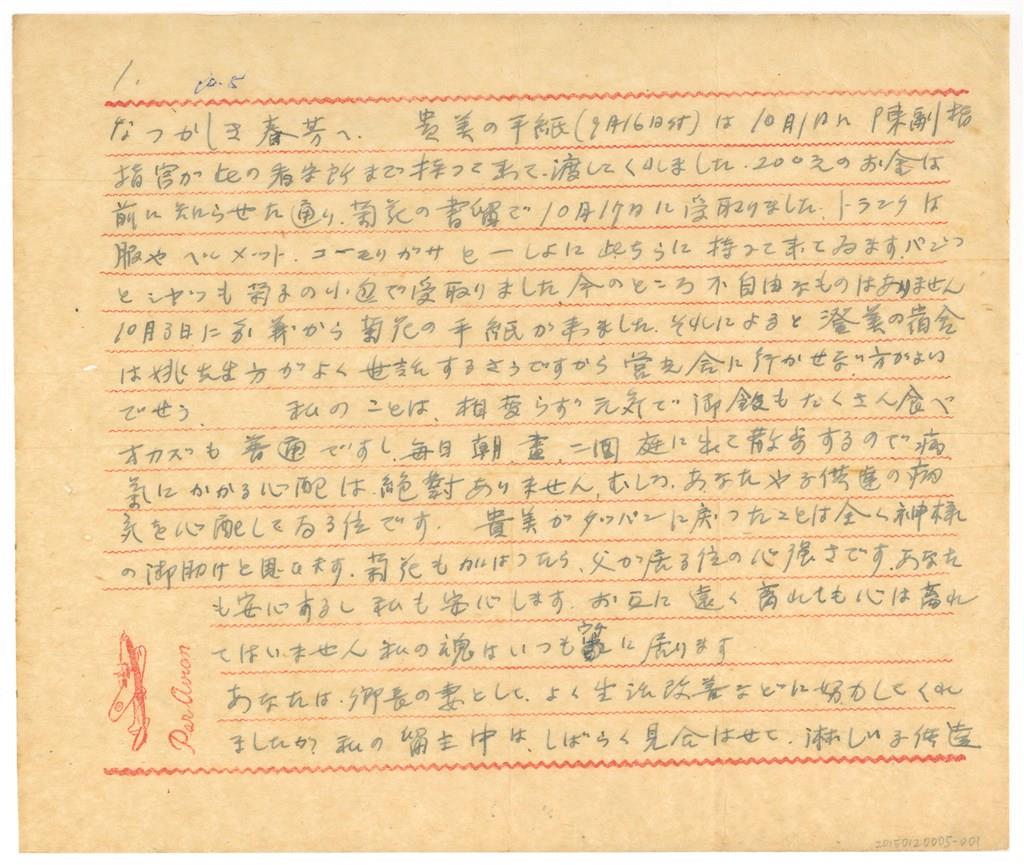 1.
なつかしき春芳へ、 貴美の手紙(9月16日付)は10月1日に陳副指
指官が此の看守所まで持って来て、渡してくれました、200元のお金は
前に知らせた通り、菊花の書留で10月17日に受取りました、トランクは
服や ヘルメット、コーモリガサと一しよに此ちらに持って来てゐます、パンツ
とシャツも菊子の小包で受取りました、今のところ不自由なものはありません
10月3日に 菊花の手紙が来ました、それによると澄美の宿舎
は姚先生方がよく世話するさうですから 会に行かせない方がよい
でせう、 私のことは、相変らず元気で御飯もたくさん食べ
オカズも普通ですし、毎日朝、晝、二回庭に出て散歩するので病
氣にかかる心配は、絶對ありません、むしろ、あなたや子供達の病
気を心配してゐる位です、 貴美がタッパンに戻ったことは全く神様
の御助けと思ひます、菊花もがんばったら、父が居る位の心強さです、あなた
も安心するし私も安心します、お互に遠く離れても心は離れ
てはいません私の魂はいつも家ウチに居ります
あなたは、郷長の妻として、よく生活改善などに努力してくれ
ましたが私の留主中は、しばらく見合はせて、淋しい子供達
Par Avion
20150120005-001